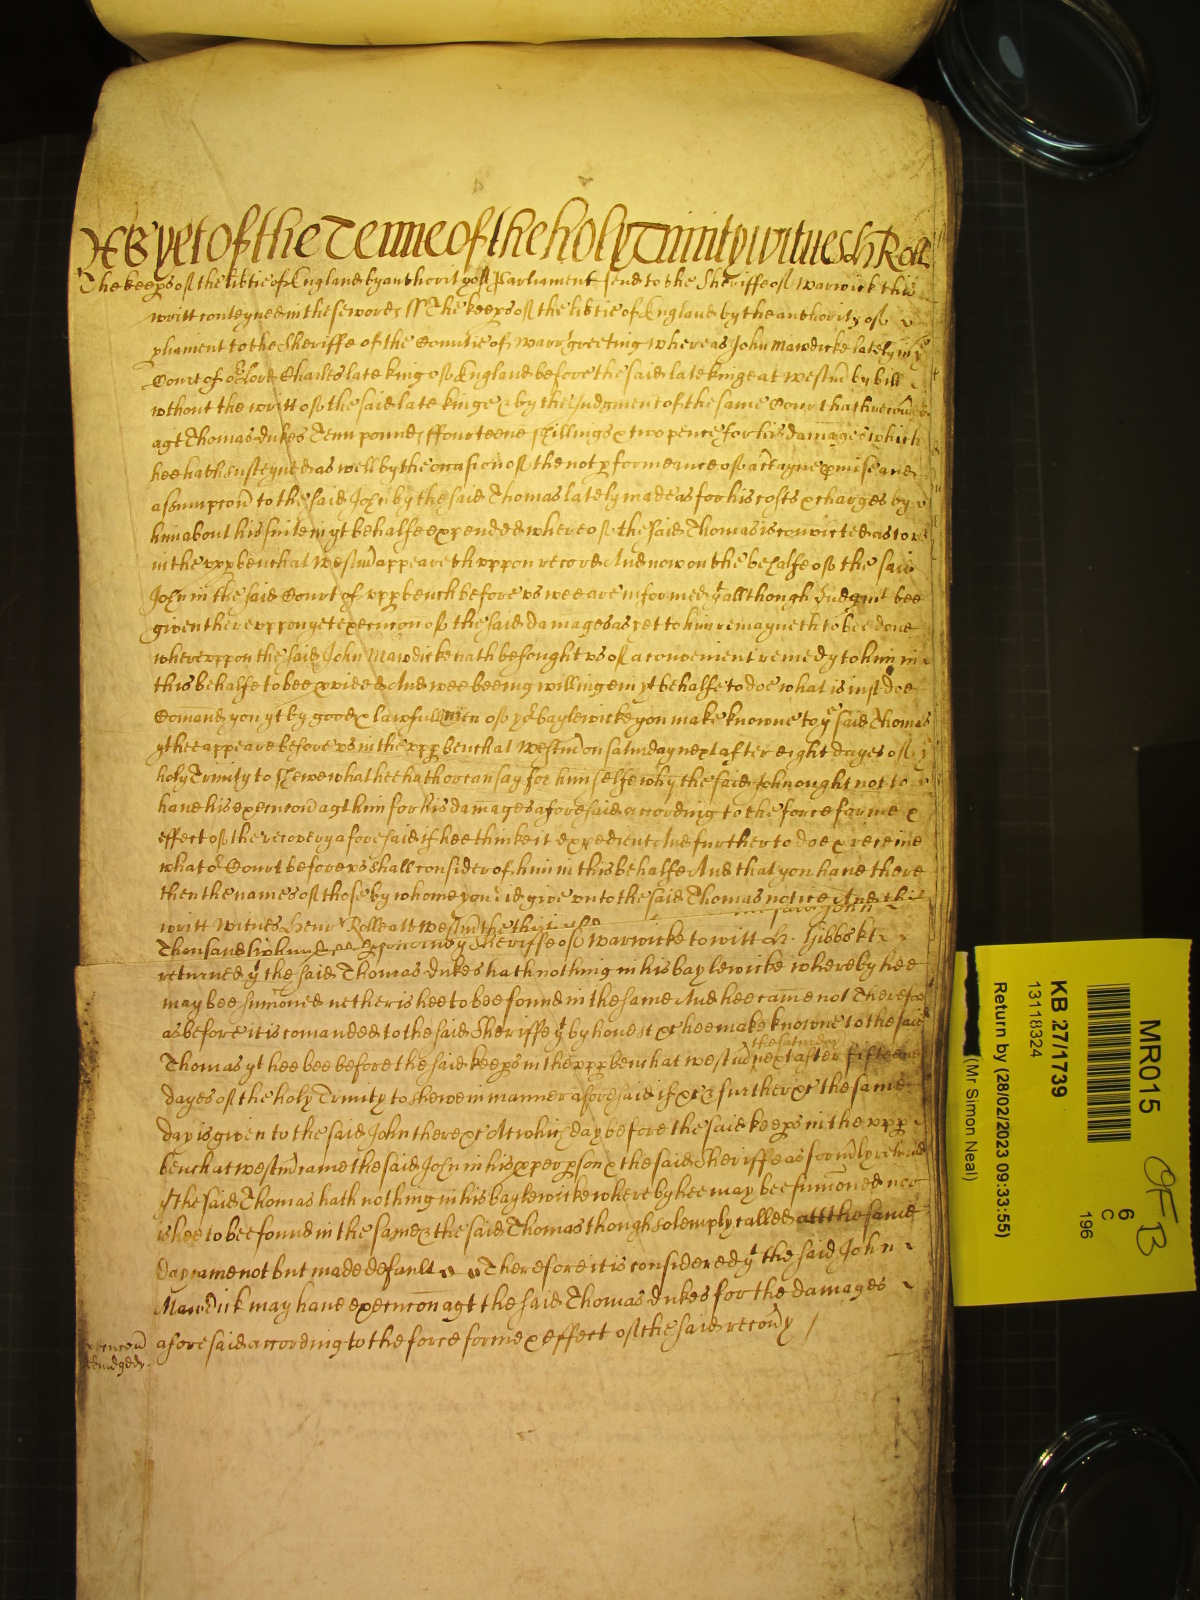 As yet of the Terme of the holy Trinity witnes H Roll
The keeps of the libtie of England by authority of Parliament send to the Sheriffe of Warwick this
writt conteyned in these words ss The keeps of the libtie of England by the authority of
pliament to the Sheriffe of the Countie of Warr greeting whereas John Mawdicke lately in ye
Court of or Lord Charles late king of England before the said late kinge at Westm by bill
wthout the writt of the said late kinge & by the Judgment of the same Court hath recoued
agt Thomas dukes Tenn pounds ffourteene shillings & two pence for his damages which
hee hath susteyned as well by the occasion of the not pformeance of a ctayne pmise and
assumpcon to the said John by the said Thomas lately made as for his costs & charges by
him about his suite in yt behalfe expended whereof the said Thomas is convicted as to vs
in the vpp bench at Westm appeareth vppon record And now on the behalfe of the said
John in the said Court of vpp bench before vs wee are informed yt allthough Judgmt bee
given therevppon yet execucon of the said damages as yet to him remayneth to bee done
wherevppon the said John Mawdicke hath besought vs of a convenient remedy to him in
this behalfe to bee pvided And wee beeing willinge in yt behalfe to doe what is just doe
Comand you yt by good & lawfull men of yor baylewicke you make knowne to ye said Thomas
yt hee appeare before vs in the vpp bench at Westm on saturday next after eight dayes of ye
holy Trinity to shew what hee hath or can say for himselfe why the said John ought not to
have his execucon agt him for his damages aforesaid according to the force forme &
effect of the recovery aforesaid if hee thinke it expedient And further to doe & receive
what or Court before vs shall consider of him in this behalfe And that you have there
then the names of those by whome you did give vnto the said Thomas notice And this
writt Witnes Henr Rolle att Westm the
the said John
Sheriffe of Warwicke to witt H. Gibbs kt
returned yt the said Thomas dukes hath nothing in his baylewicke whereby hee
may bee sumoned nether is hee to bee found in the same And hee came not Therefore
as before it is comanded to the said Sheriffe yt by honest &c hee make knowne to the said
the saturday
Thomas yt hee bee before the said keeps in the vpp bench at westm next after fifteene
dayes of the holy Trinity to shewe in manner aforesaid if &c & further &c the same
day is given to the said John there &c At which day before the said keeps in the vpp
bench at westm came the said John in his pper pson & the said Sheriffe as formly retnd
yt the said Thomas hath nothing in his baylewicke whereby hee may bee sumoned nor
is hee to bee found in the same & the said Thomas though solemply called att the same
day came not but made default Therefore it is considered yt the said John
Mawdick may have execucon agt the said Thomas dukes for the damages
aforesaid according to the force forme & effect of the said recoury
execucon
adiudged
MR015
KB 27/1739
13118324
Return by (28/02/2023 09:33:55)
(Mr Simon Neal)
6
C
196
OFB